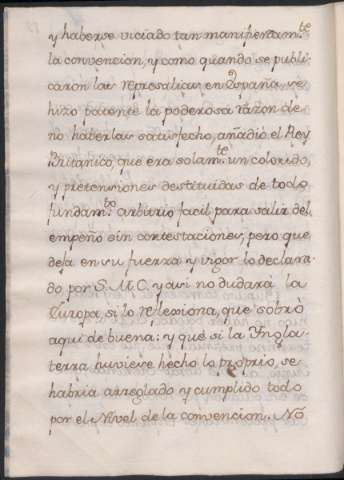 y haberse viciado tan manifiestam.te
la convencion, y como quando se publi
caron las represalias en España se
hizo patente la poderosa razon de
no haberlas satisfecho, añadió el Rey
Britanico que era solam.te un colorido,
y pretensiones destituidas de todo
fundam.to arbitrio facil para salir del
empeño sin contestaciones, pero que
deja en su fuerza y vigor lo declara
do por S.M.C. y asi no dudará la
Europa, si lo reflexiona, que sobró
aqui de buena: y que si la Ingla-
terra huviere hecho lo proprio, se
habria arreglado y cumplido todo
por el Nivel de la convencion. No